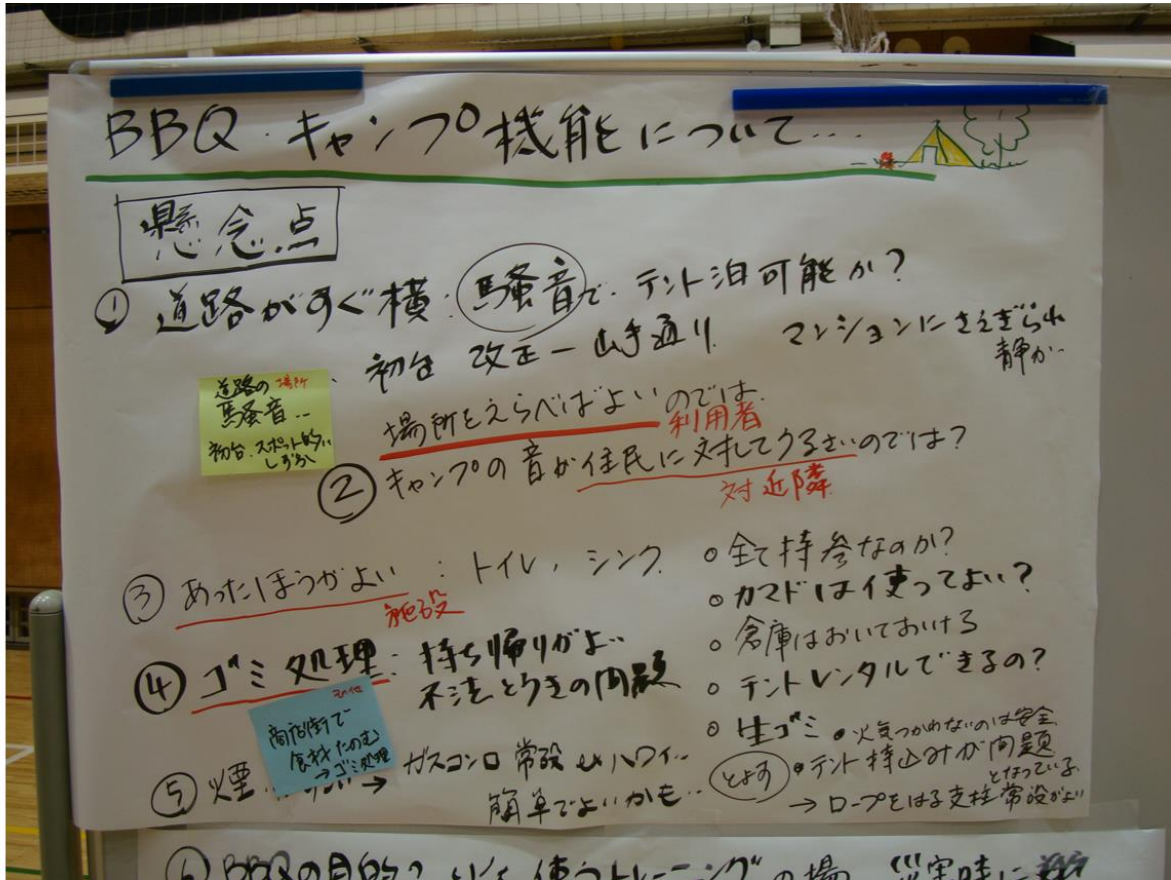 BBQ・キャンプ機能について…
懸念点
① 道路がすぐ横・騒音で・テント泊可能か?
初台 改正ー山手通り マンションにさえぎられ
静か…
道路の 場所
騒音..
初台、スポット的に
しずか
場所をえらべばよいのでは
利用者
② キャンプの音が住民に対してうるさいのでは?
対近隣
③ あったほうがよい : トイレ, シンク
施設
④ ゴミ処理: 持ち帰りがよい
不法とうきの問題
その他
商店街で
食材たのむ
→ゴミ処理
⑤ 煙
→ ガスコンロ 常設 ex ハワイ…
簡単でよいかも…
○ 全て持参なのか?
○ カマドは使ってよい?
○ 倉庫はおいておける
○ テントレンタルできるの?
○ 生ゴミ
● 火気つかわないのは安全
とよす ● テント持込みが問題
となっている
→ ロープをはる支柱常設がよい
⑥ BBQの目的?
使うトレーニングの場
災害時に